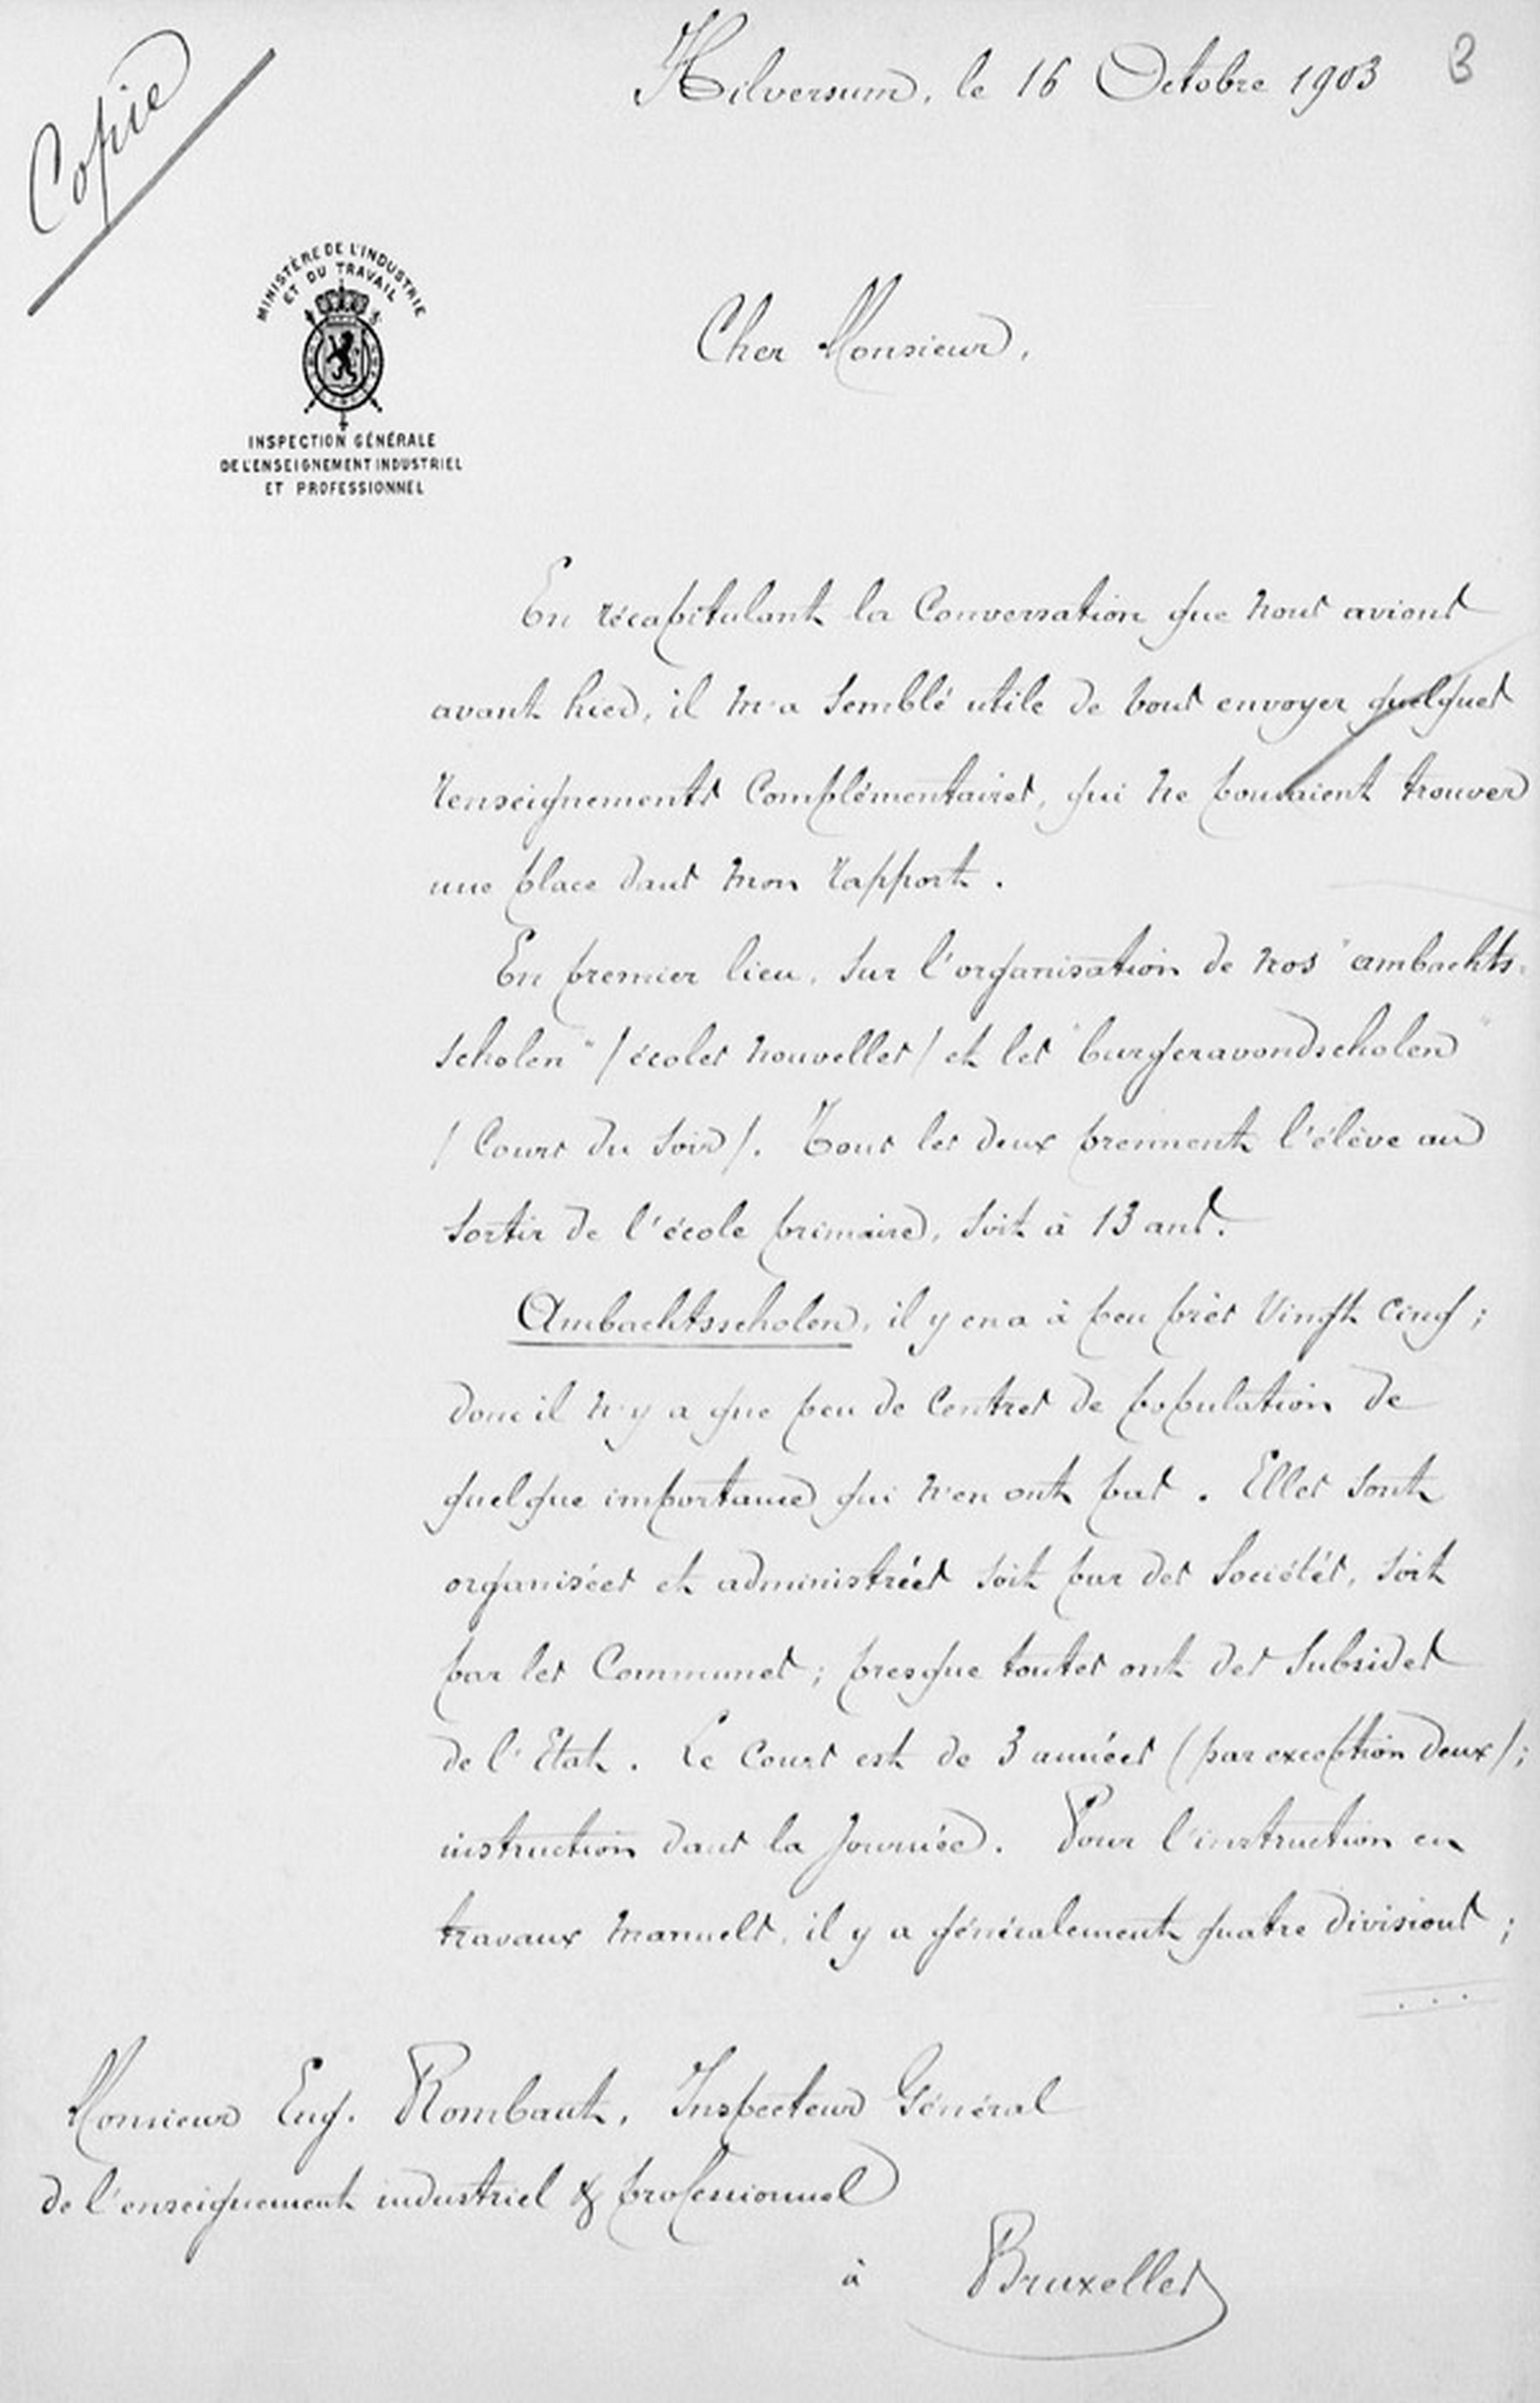 Copie
Hilversum, le 16 Octobre 1903
3
MINISTÈRE DE L'INDUSTRIE
ET DU TRAVAIL
Cher Monsieur,
INSPECTION GÉNÉRALE
DE L'ENSEIGNEMENT INDUSTRIEL
ET PROFESSIONNEL
En récapitulant la Conversation que nous avions
avant hier, il m'a semblé utile de vous envoyer quelques
renseignements complémentaires, qui ne pouvaient trouver
une place dans mon rapport.
En premier lieu, sur l'organisation de nos "ambachts-
scholen" (écoles nouvelles) et les "burgeravondscholen"
(Cours du soir). Tous les deux prennent l'élève au
sortir de l'école primaire, soit à 13 ans.
Ambachtsscholen, il y en a à peu près vingt cinq;
donc il n'y a que peu de centres de population de
quelque importance qui n'en ont pas. Elles sont
organisées et administrées soit par des Sociétés, soit
par les Communes; presque toutes ont des Subsides
de l'Etat. Le Cours est de 3 années (par exception deux);
instruction dans la journée. Pour l'instruction en
travaux manuels, il y a généralement quatre divisions;
...
Monsieur Eug. Rombaut, Inspecteur Général
de l'enseignement industriel & professionnel
à Bruxelles